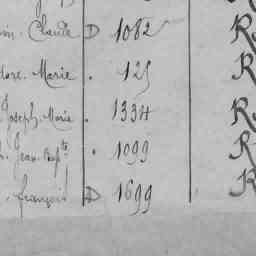 Claude D 1082 R
Marie . 125 R
Joseph. Marie . 1334 R
Jean Bapte . 1099 R
françois D 1699 R